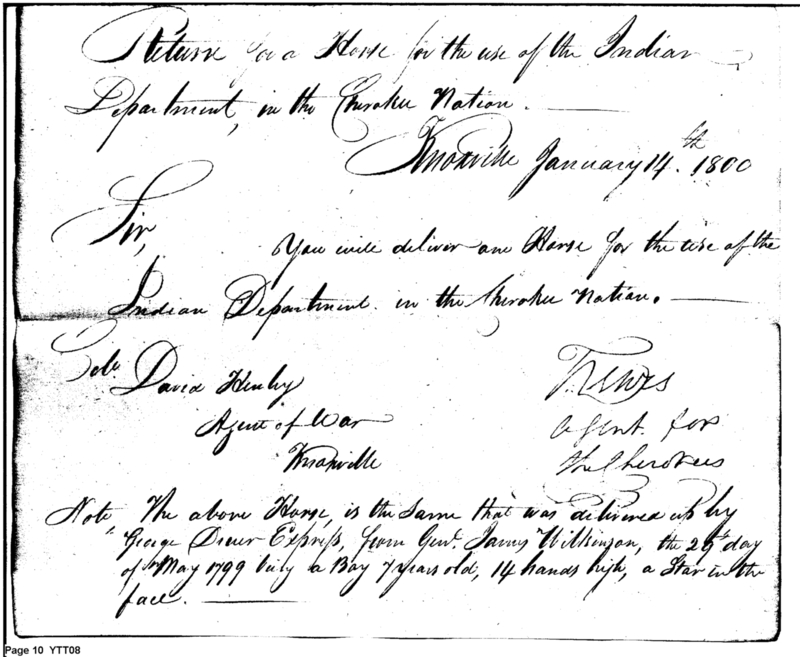 Return for a Horse for the use of the Indian
Department, in the Cherokee Nation.
Knoxville January 14th. 1800
Sir,
You will deliver one Horse for the use of the
Indian Department in the Cherokee Nation.
Colo. David Henley
Agent of War
Knoxville
agent for
the Cherokees
Note The above Horse, is the same that was delivered up by
George Express, from Genl. James Wilkinson, the 29th day
of May 1799 being a Bay 7 years old, 14 hands high, a Star in the
face.
Page 10 YTT08